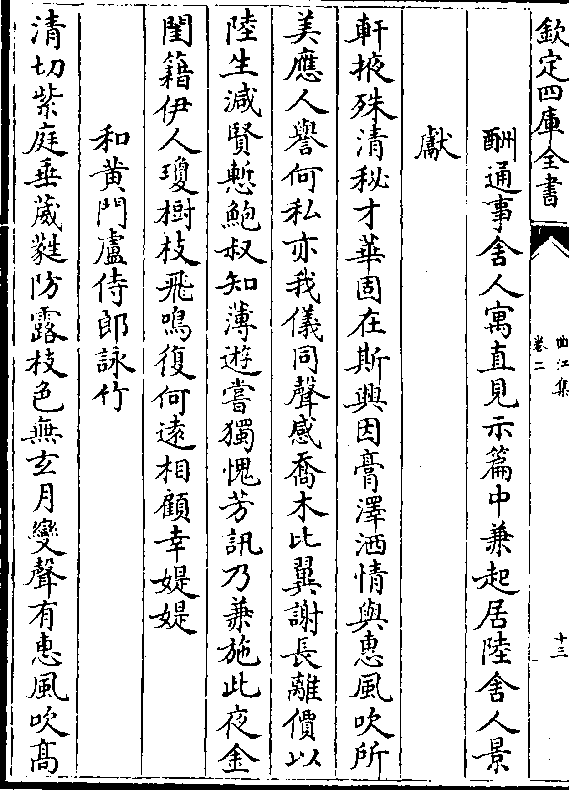 欽定四庫全書
曲江集
卷二
十三
酬通事舍人寓直見示篇中兼起居陸舍人景
獻
軒掖殊清秘才華固在斯興因膏澤洒情與惠風吹所
美應人譽何私亦我儀同聲感喬木比翼謝長離價以
陸生減賢慙鮑叔知薄遊嘗獨愧芳訊乃兼施此夜金
閨籍伊人瓊樹枝飛鳴復何遠相顧幸媞媞
和黄門盧侍郎詠竹
清切紫庭垂葳蕤防露枝色無玄月變聲有惠風吹髙